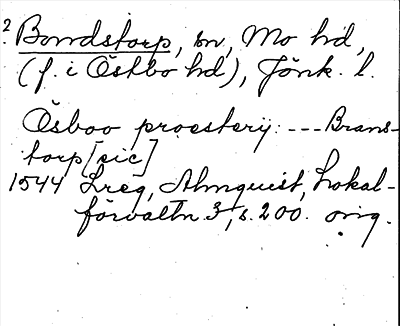 ? Bondstorp, sn, Mo hd,
(f. i Östbo hd), Jönk. l.
Ösboo proesterij: --- Brans-
torp [sic]
1544 Lreg, Almquist, Lokal-
förvaltn. 3, s. 200. orig.